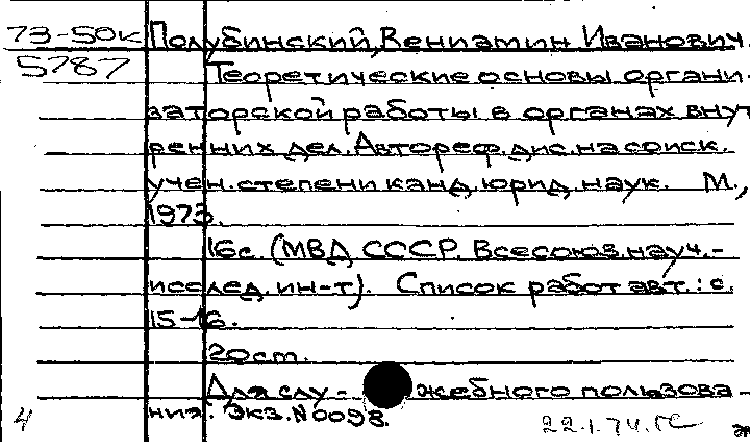 73-50к Полубинский, Вениамин Иванович.
5787 Теоретические основы органи-
заторской работы в органах внут
ренних дел. Автореф. дис. на соиск.
учен. степени канд. юрид. наук. М.,
1973.
16с. (МВД СССР. Всесоюз. науч.-
исслед. ин-т). Список работ авт.: с.
15-16.
20 cm.
Для слу- жебного пользова-
4 ния. Экз. N 0098.
22.1.74.